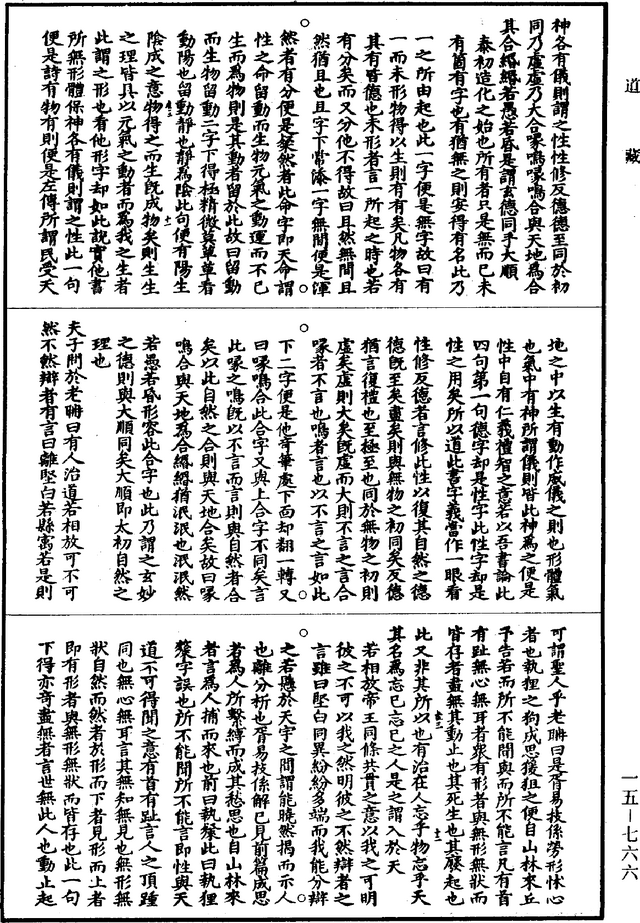 道藏
神各有儀則謂之性性修反德德至同於初
同乃虛虛乃大合喙鳴喙鳴合與天地為合
其合緡緡若愚若昏是謂玄德同乎大順
泰初造化之始也所有者只是無而已未
有箇有字也有猶無之則安得有名此乃
一之所由起也此一字便是無字故曰有
一而未形物得以生則有有矣凡物各有
其有皆德也未形者言一所起之時也若
有分矣而又分他不得故曰且然無間且
然猶且也且字下當添一字無間便是渾
然者有分便是粲然者此命字即天命謂
性之命留動而生物元氣之動運而不已
生而為物則是其動者留於此故曰留動
而生物留動二字下得極精微莫草草看
動陽也留動靜也靜為陰此句便有陽生
陰成之意物得之而生既成物矣則生生
之理皆具以元氣之動者而為我之生者
此謂之形也看他形字却如此說實他書
所無形體保神各有儀則謂之性此一句
便是詩有物有則便是左傳所謂民受天
地之中以生有動作威儀之則也形體氣
也氣中有神所謂儀則皆此神為之便是
性中自有仁義禮智之意若以吾書論此
四句第一句德字却是性字此性字却是
性之用矣所以道此書字義當作一眼看
性修反德若言修此性以復其自然之德
德既至矣盡矣則與無物之初同矣反德
猶言復禮也至極至也同於無物之初則
虛矣虛則大矣既虛而大則不言之言合
喙者不言也鳴者言也以不言之言如此
下二字便是他奇筆處下面却翻一轉又
曰喙鳴合此合字又與上合字不同矣言
此喙之鳴既以不言而言則與自然者合
矣以此自然之合則與天地合矣故曰喙
鳴合與天地為合緡緡猶泯泯也泯泯然
若愚若昏形容此合字也此乃謂之玄妙
之德則與大順同矣大順即太初自然之
理也
夫子問於老聃曰有人治道若相放可不可
然不然辯者有言曰離堅白若縣㝢若是則
可謂聖人乎老聃曰是胥易技係勞形怵心
者也執狸之狗成思猨狙之便自山林來丘
予告若而所不能聞與而所不能言凡有首
有趾無心無耳者眾有形者與無形無狀而
皆存者盡無其動止也其死生也其廢起也
此又非其所以也有治在人忘乎物忘乎天
其名為忘己忘己之人是之謂入於天
若相放帝王同條共貫之意以我之可明
彼之不可以我之然明彼之不然辯者之
言雖曰堅白同異紛紛多端而我能分辯
之若懸於天宇之間謂能曉然揭而示人
也離分析也胥易技係解已見前篇成思
者為人所繫縛而成其愁思也自山林來
者言為人捕而來也前曰執斄此曰執狸
斄字誤也所不能聞所不能言即性與天
道不可得聞之意有首有趾言人之頂踵
同也無心無耳言其無知無見也無形無
狀自然而然者於形而下者見形而上者
即有形者與無形無狀而皆存也此一句
下得亦奇盡無者言世無此人也動止起
一五—七六六